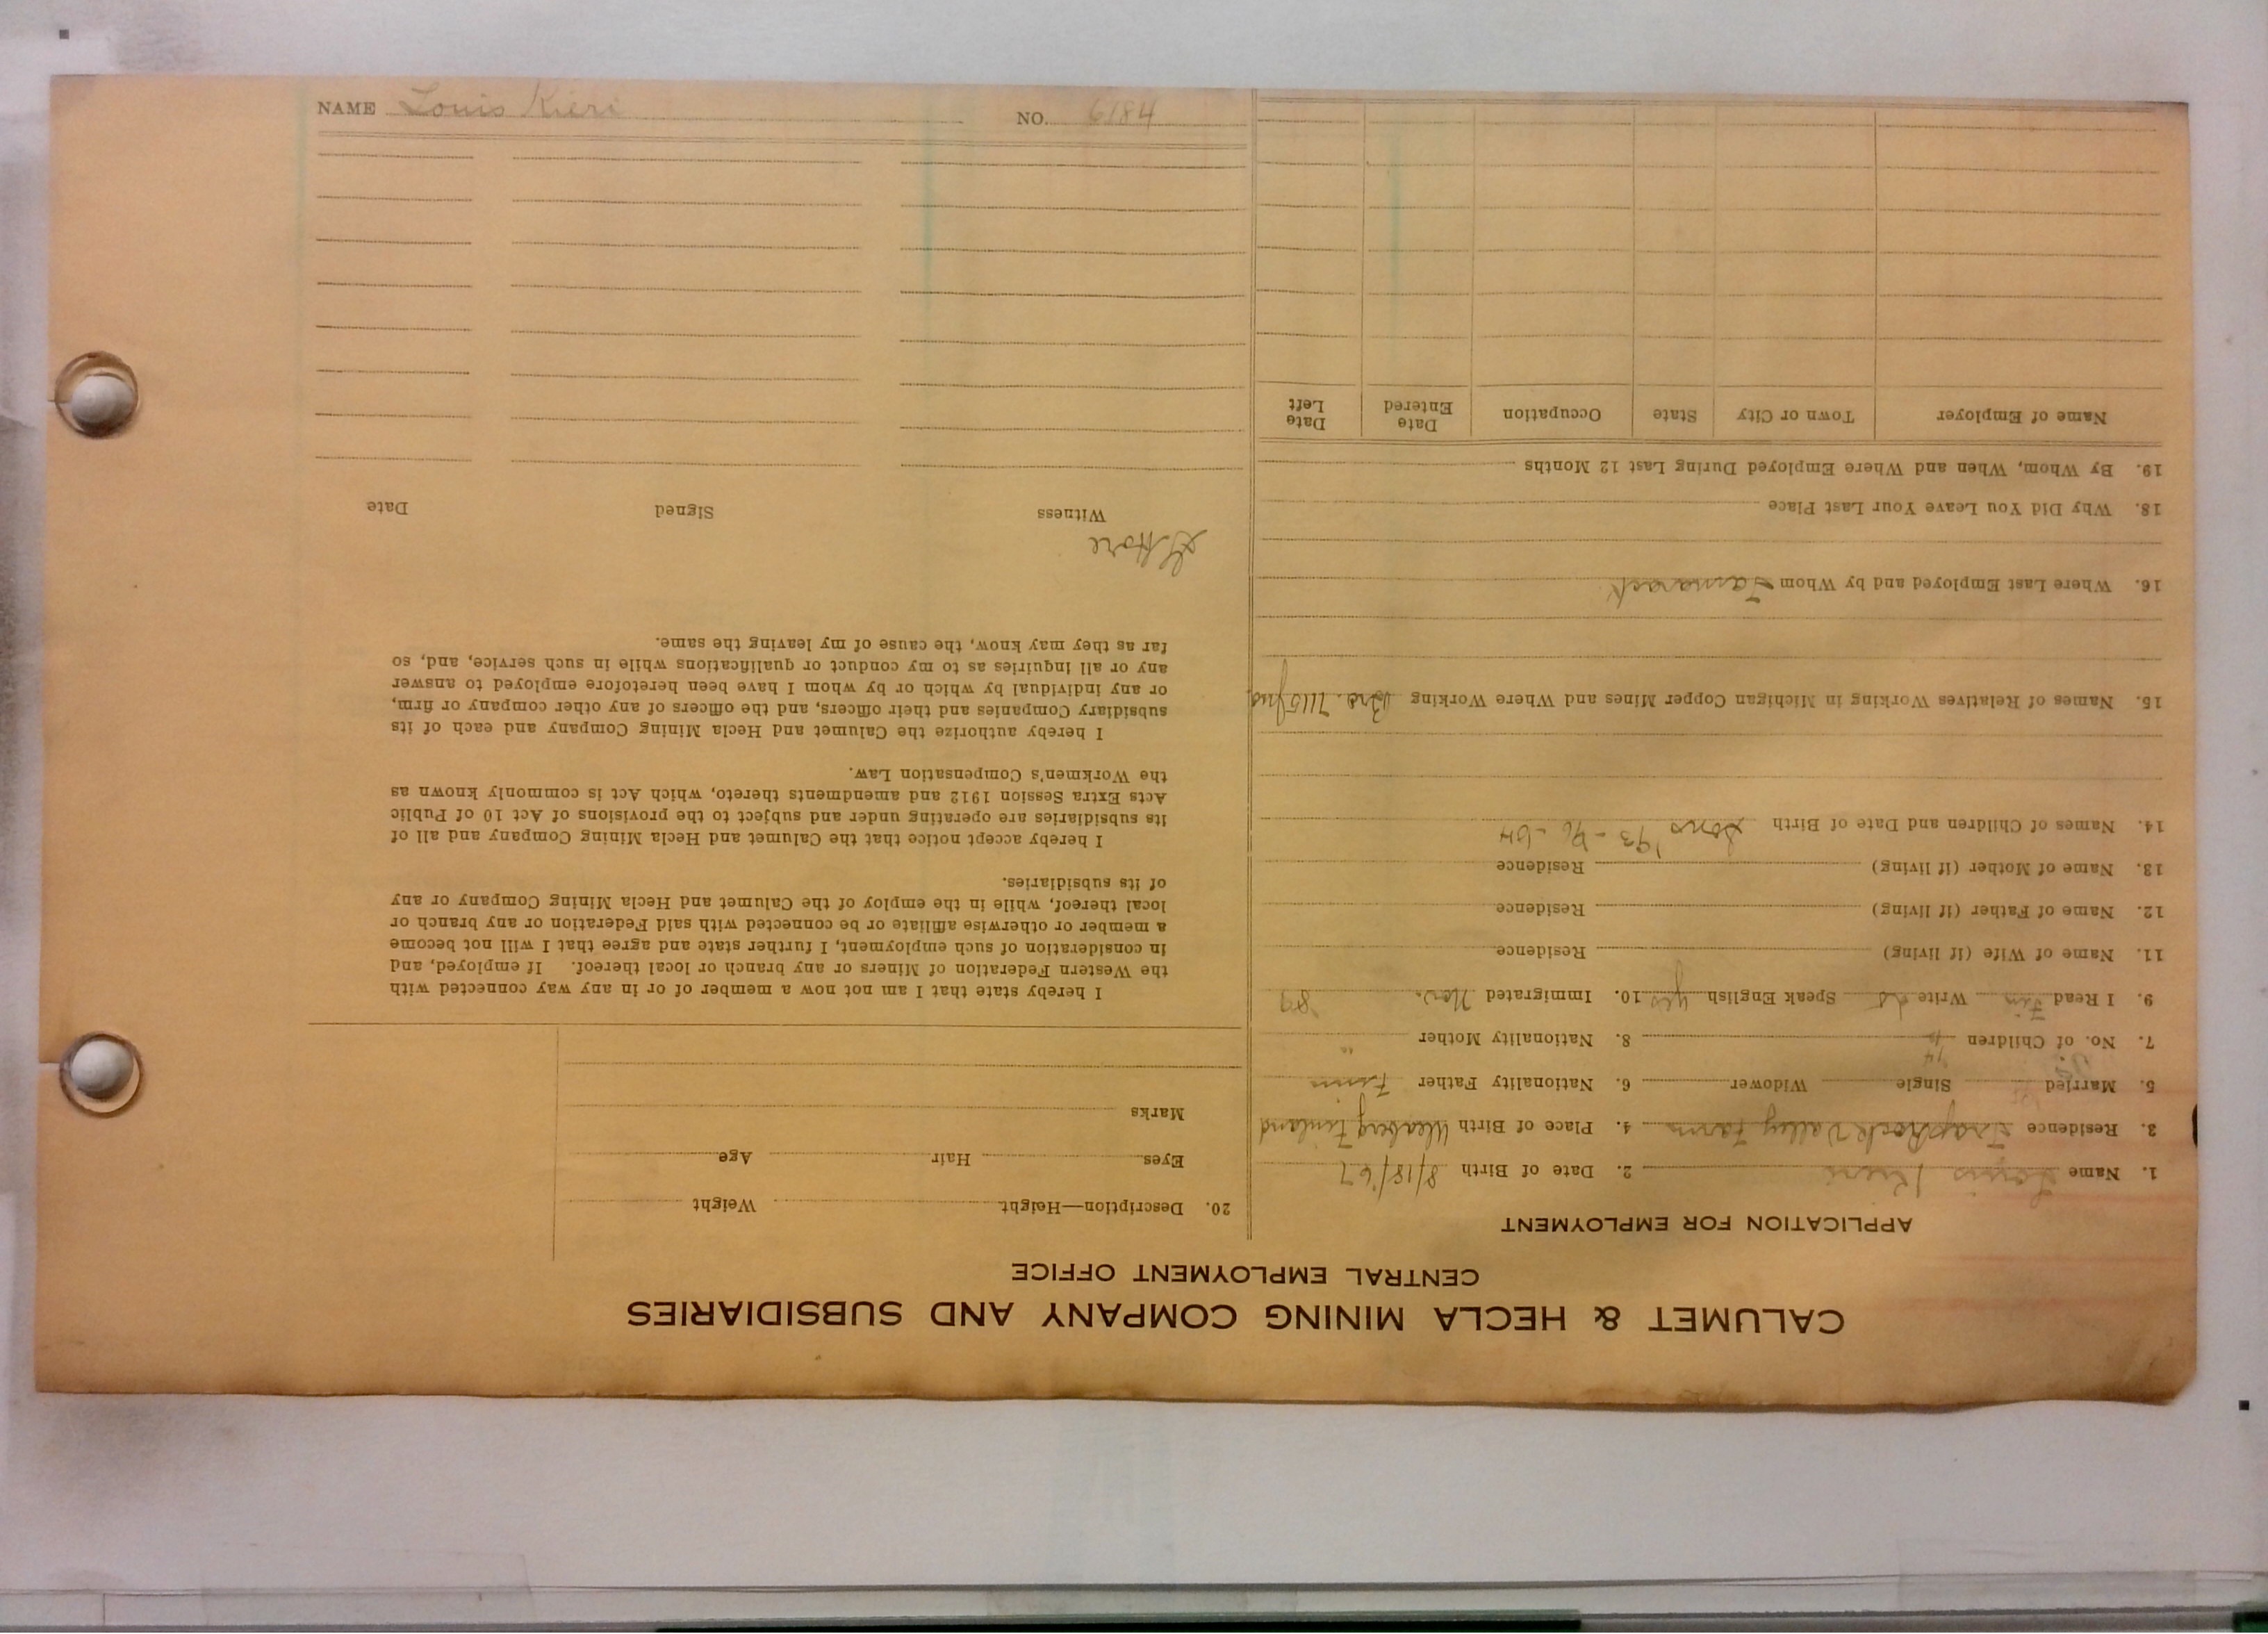 CALUMET & HECLA MINING COMPANY AND SUBSIDIARIES
CENTRAL EMPLOYMENT OFFICE
APPLICATION FOR EMPLOYMENT
1. Name Louis Kieri 2. Date of Birth 8/18/'67
3. Residence Trap Rock Valley Farm 4. Place of Birth Uleaborg Finland
5. Married Single Widower 6. Nationality Father Finn
7. No. of Children 8. Nationality Mother "
9. I Read Fin Write do Speak English yes 10. Immigrated Nov. 89
11. Name of Wife (if living) Residence
12. Name of Father (if living) Residence
13. Name of Mother (if living) Residence
14. Names of Children and Date of Birth Sons '93 - 96 - 04
15. Names of Relatives Working in Michigan Copper Mines and Where Working Bro.
16. Where Last Employed and by Whom Tamarack
18. Why Did You Leave Your Last Place
19. By Whom, When and Where Employed During Last 12 Months
Name of Employer Town or City State Occupation Date Entered Date Left
20. Description—Height Weight
Eyes Hair Age
Marks
I hereby state that I am not now a member of or in any way connected with
the Western Federation of Miners or any branch or local thereof. If employed, and
in consideration of such employment, I further state and agree that I will not become
a member or otherwise affiliate or be connected with said Federation or any branch or
local thereof, while in the employ of the Calumet and Hecla Mining Company or any
of its subsidiaries.
I hereby accept notice that the Calumet and Hecla Mining Company and all of
its subsidiaries are operating under and subject to the provisions of Act 10 of Public
Acts Extra Session 1912 and amendments thereto, which Act is commonly known as
the Workmen's Compensation Law.
I hereby authorize the Calumet and Hecla Mining Company and each of its
subsidiary Companies and their officers, and the officers of any other company or firm,
or any individual by which or by whom I have been heretofore employed to answer
any or all inquiries as to my conduct or qualifications while in such service, and, so
far as they may know, the cause of my leaving the same.
Hore
Witness Signed Date
NAME Louis Kieri NO. 6184